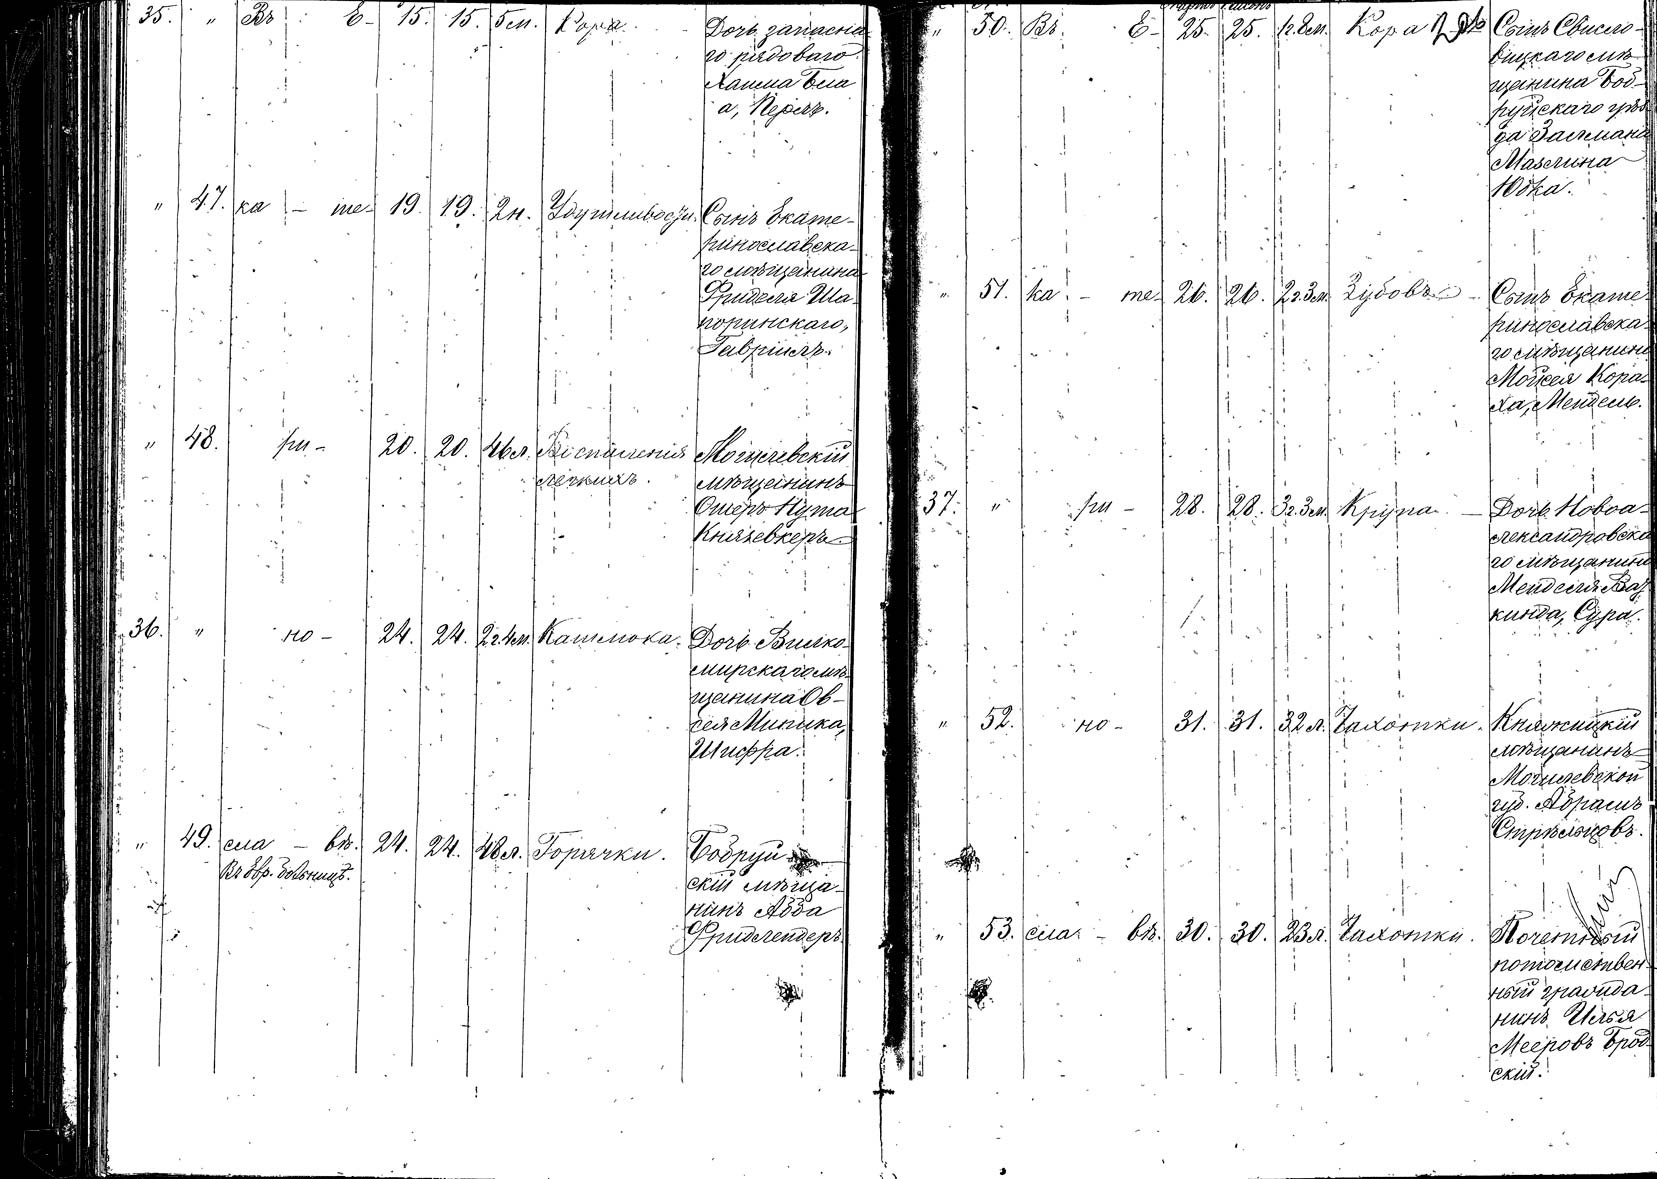 35. " Въ Е- 15. 15. 5 м. Кора. Дочь запасна-
го рядоваго
Хаима Бла
а, Перлъ.
" 47. ка - те- 19. 19. 2 н. Удушливости. Сынъ Екате-
ринославска-
го мѣщанина
Фриделя Ша-
поринскаго,
Гавріилъ.
" 48. ри- 20. 20. 46 л. Воспаленія Могилевскій
легкихъ. мѣщанинъ
Ошеръ Нута
36. " но- 24. 24. 2 г. 4 м. Кашлюка. Дочь Вилко-
мирскаго мѣ-
щанина Ов-
сея Миника,
Шифра.
" 49. сла - вѣ. 24. 24. 48 л. Горячки. Бобруй-
Въ Евр. больницѣ. скій мѣща-
нинъ Абба
Фридлендеръ.
" 50. Въ Е- 25. 25. 1 г. 8 м. Кора Сынъ Свисло-
вицкаго мѣ-
щанина Боб-
руйскаго уѣз-
да Залмана
Мазлина
Юдка.
" 51. ка - те- 26. 26. 2 г. 3 м. Зубовъ - Сынъ Екате-
ринославска-
го мѣщанина
Мойсея Кора-
ха, Мендель.
37. " ри - 28. 28. 3 г. 3 м. Крупа - Дочь Новоа-
лександровска
го мѣщанина
Менделя Ва-
кинда, Сура.
" 52. но- 31. 31. 32 л. Чахотки. Княжицкій
мѣщанинъ
Могилевской
губ. Абрамъ
Стрѣльцовъ.
" 53. сла - вѣ. 30. 30. 23 л. Чахотки. Почетный
потомствен-
ный гражда-
нинъ Илья
Мееровъ Брод-
скій.